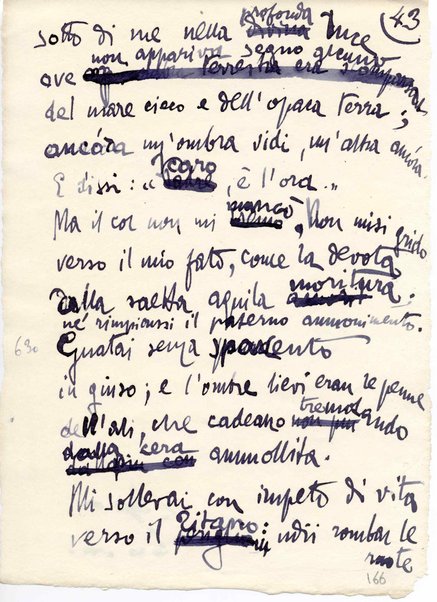 43
sotto di me nella profonda luce
ove non appariva segno alcuno
del mare cieco e dell'opaca terra;
ancóra un'ombra vidi, un'altra ancóra.
E dissi: « Icaro, è l'ora. »
Ma il cor non mi mancò. Non misi grido
verso il mio fato, come la devota
dalla saetta aquila moritura;
né rimpiansi il paterno ammonimento.
630 Guatai senza spavento
in giuso; e l'ombre lievi eran le penne
dell'ali, che cadeano tremolando
dalla cera ammollita.
Mi sollevai con impeto di vita
verso il Titano: udii rombar le
ruote
166